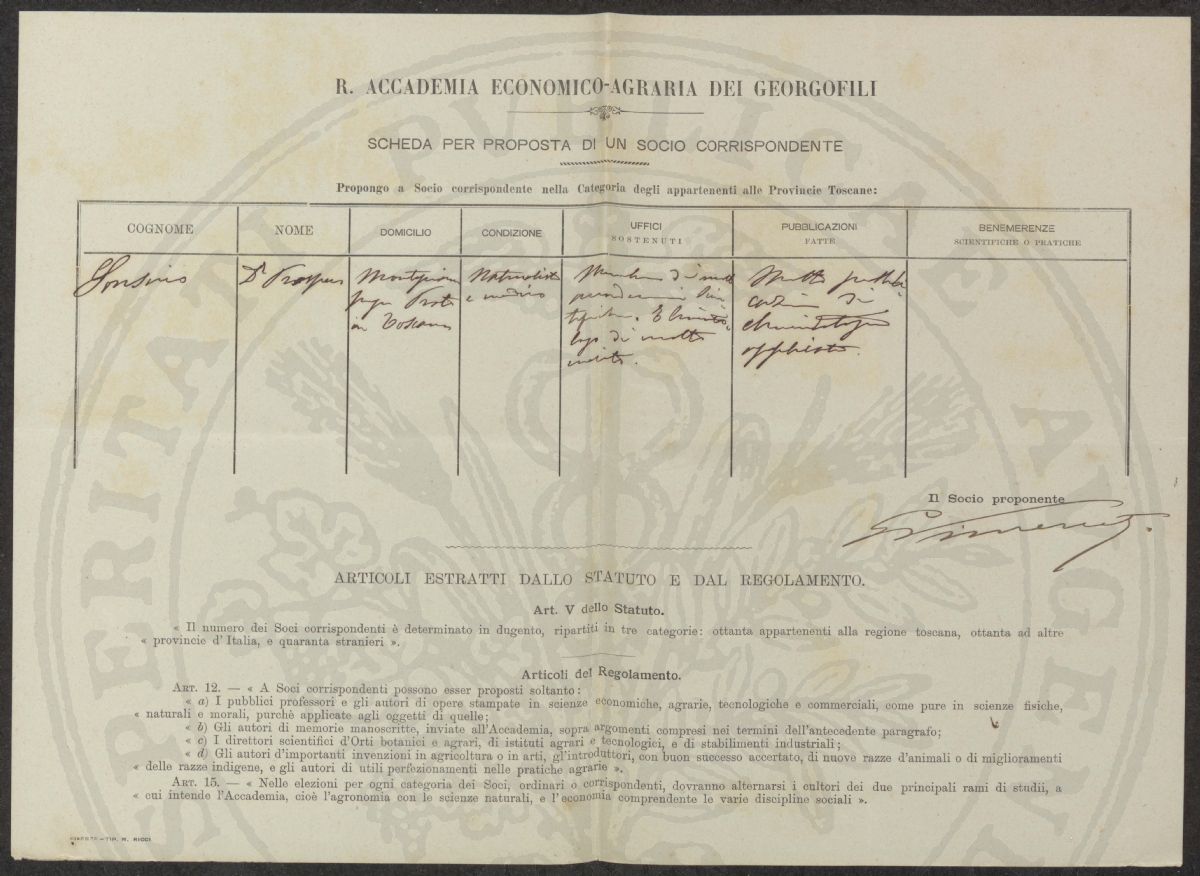 R. ACCADEMIA ECONOMICO-AGRARIA DEI GEORGOFILI
SCHEDA PER PROPOSTA DI UN SOCIO CORRISPONDENTE
Propongo a Socio corrispondente nella Categoria degli appartenenti alle Provincie Toscane:
COGNOME
NOME
DOMICILIO
CONDIZIONE
UFFICI
SOSTENUTI
PUBBLICAZIONI
FATTE
BENEMERENZE
SCIENTIFICHE O PRATICHE
Sonsino
Dr Prospero
in Toscana
Naturalista
e medico
Membro di molte
logo di molto
merito.
Molte pubbli
cazioni di
Il Socio proponente
ARTICOLI ESTRATTI DALLO STATUTO E DAL REGOLAMENTO.
Art. V dello Statuto.
« Il numero dei Soci corrispondenti è determinato in dugento, ripartiti in tre categorie: ottanta appartenenti alla regione toscana, ottanta ad altre
« provincie d'Italia, e quaranta stranieri ».
Articoli del Regolamento.
ART. 12. — « A Soci corrispondenti possono esser proposti soltanto:
« a) I pubblici professori e gli autori di opere stampate in scienze economiche, agrarie, tecnologiche e commerciali, come pure in scienze fisiche,
« naturali e morali, purchè applicate agli oggetti di quelle;
« b) Gli autori di memorie manoscritte, inviate all'Accademia, sopra argomenti compresi nei termini dell'antecedente paragrafo;
« c) I direttori scientifici d'Orti botanici e agrari, di istituti agrari e tecnologici, e di stabilimenti industriali;
« d) Gli autori d'importanti invenzioni in agricoltura o in arti, gl'introduttori, con buon successo accertato, di nuove razze d'animali o di miglioramenti
« delle razze indigene, e gli autori di utili perfezionamenti nelle pratiche agrarie ».
ART. 15. — « Nelle elezioni per ogni categoria dei Soci, ordinari o corrispondenti, dovranno alternarsi i cultori dei due principali rami di studii, a
« cui intende l'Accademia, cioè l'agronomia con le scienze naturali, e l'economia comprendente le varie discipline sociali ».
FIRENZE – TIP. M. RICCI